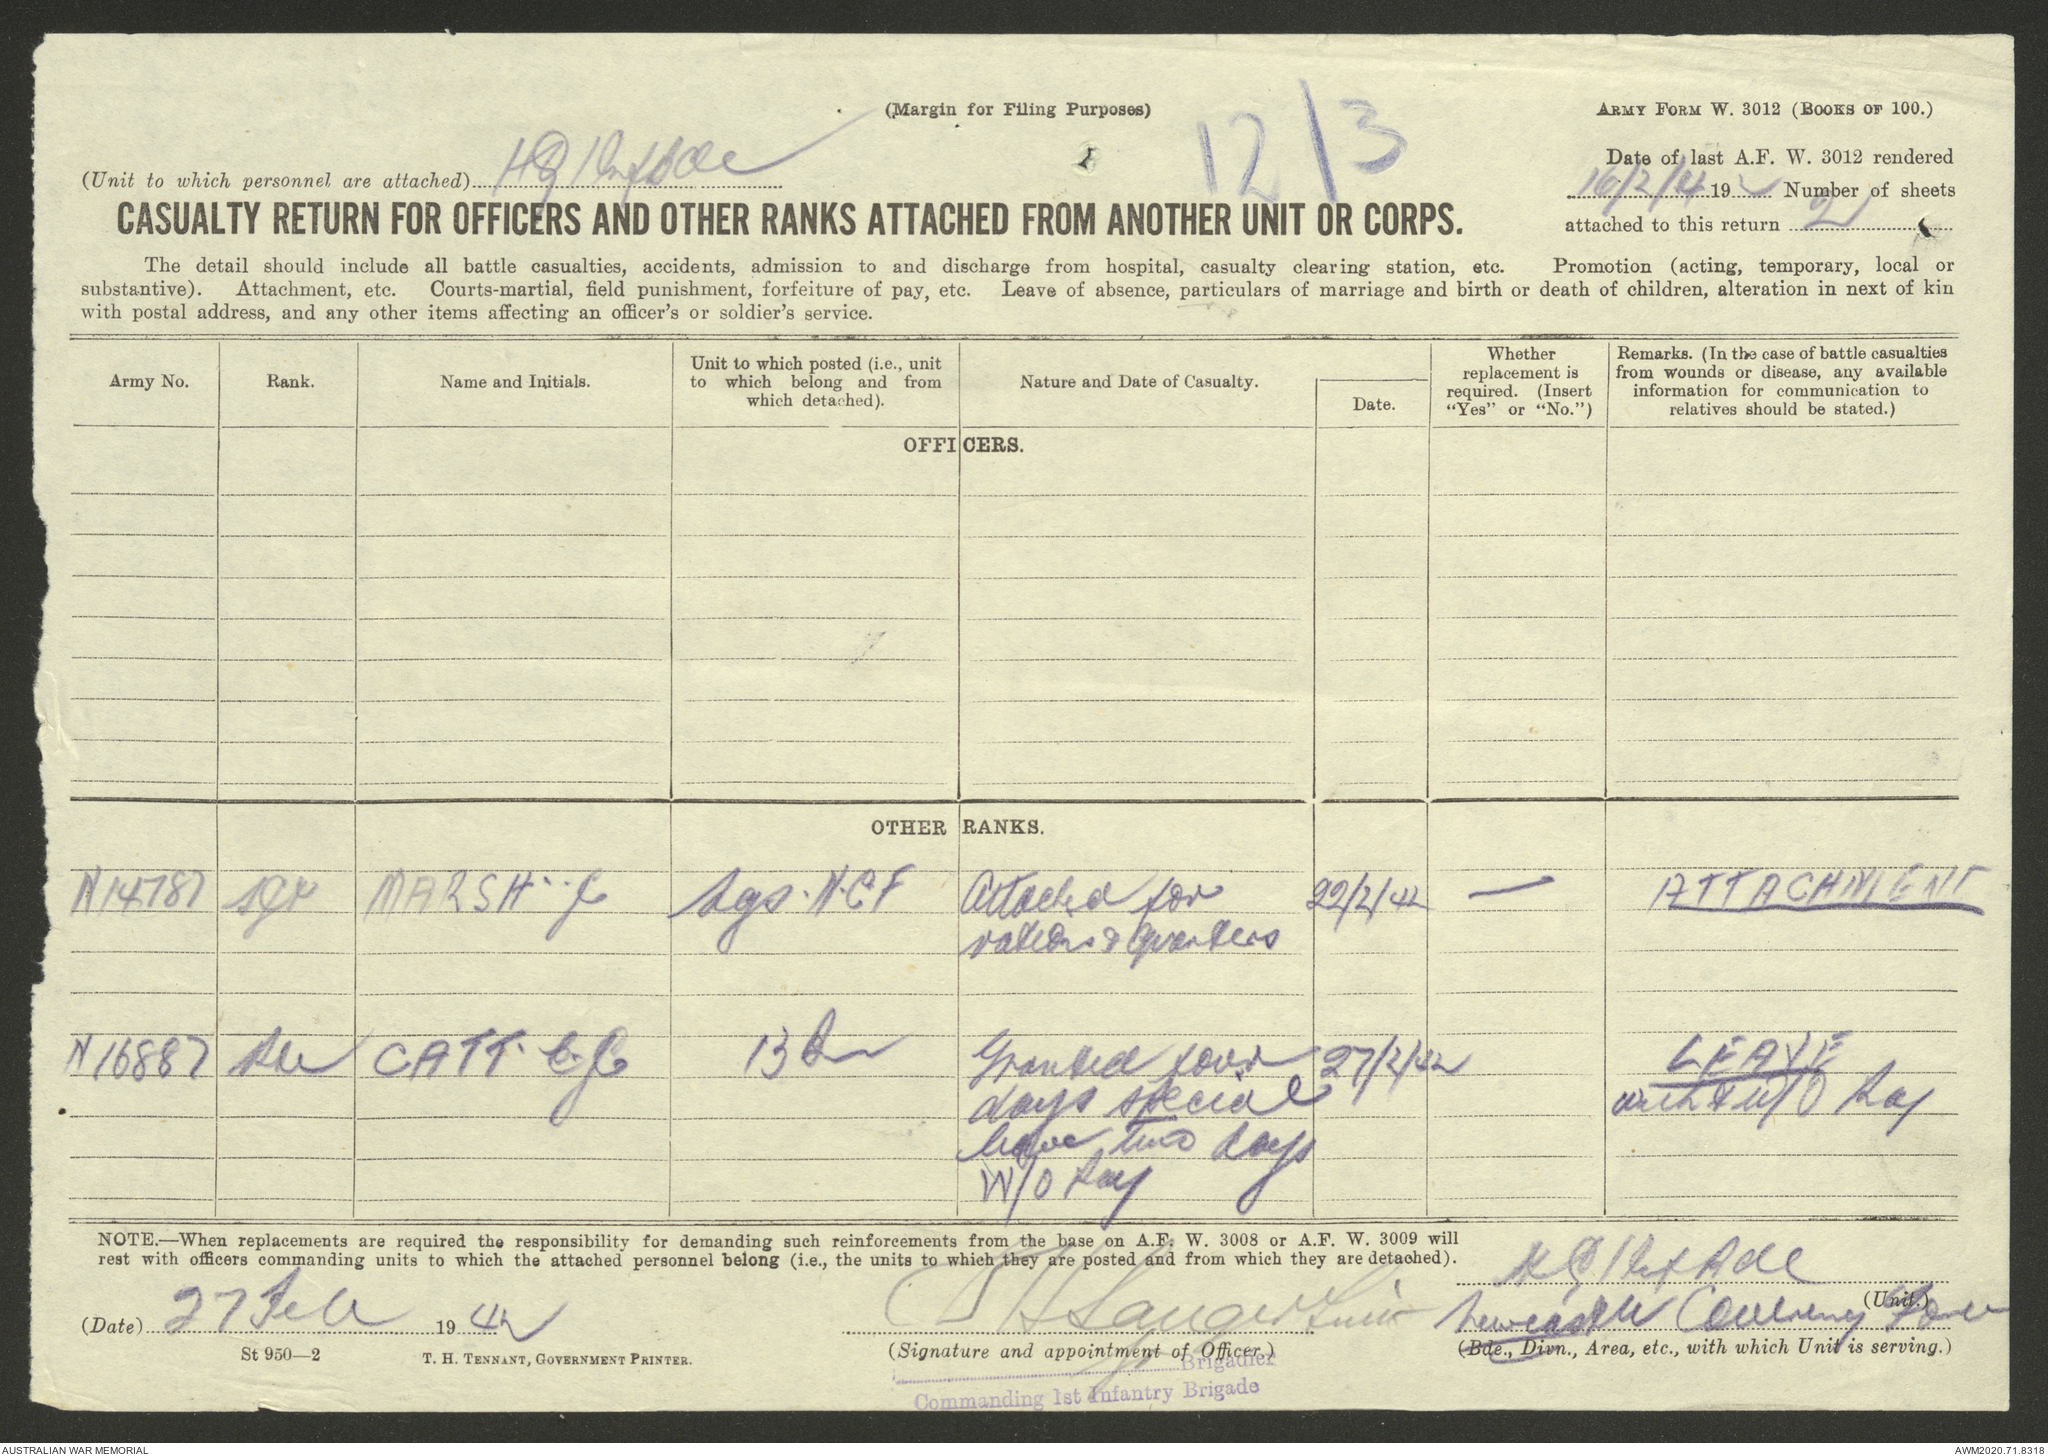 (Margin for Filing Purposes)
12/3
ARMY FORM W. 3012 (BOOKS OF 100.)
(Unit to which personnel are attached) HQ 1 Inf Bde
Date of last A.F. W. 3012 rendered
16/2/4 19 2 Number of sheets
attached to this return 2
CASUALTY RETURN FOR OFFICERS AND OTHER RANKS ATTACHED FROM ANOTHER UNIT OR CORPS.
The detail should include all battle casualties, accidents, admission to and discharge from hospital, casualty clearing station, etc. Promotion (acting, temporary, local or
substantive). Attachment, etc. Courts-martial, field punishment, forfeiture of pay, etc. Leave of absence, particulars of marriage and birth or death of children, alteration in next of kin
with postal address, and any other items affecting an officer's or soldier's service.
Army No.
Rank.
Name and Initials.
Unit to which posted (i.e., unit
to which belong and from
which detached).
Nature and Date of Casualty.
Date.
Whether
replacement is
required. (Insert
"Yes" or "No.")
Remarks. (In the case of battle casualties
from wounds or disease, any available
information for communication to
relatives should be stated.)
OFFICERS.
OTHER RANKS.
N14787 MARSH J Sgs. N.C.F Attached for 22/2/42 — ATTACHMENT
rations & quarters
N16887 Pte CATT. C.J. 13 Bn Granted four 27/2/42 LEAVE
days special with & w/o Pay
leave two days
W/O Pay
NOTE.—When replacements are required the responsibility for demanding such reinforcements from the base on A.F. W. 3008 or A.F. W. 3009 will
rest with officers commanding units to which the attached personnel belong (i.e., the units to which they are posted and from which they are detached).
HQ 1 Inf Bde
(Unit.)
(Date) 27 Feb 1942
Newcastle Covering Force
(Signature and appointment of Officer.)
(Bde., Divn., Area, etc., with which Unit is serving.)
St 950—2
T. H. TENNANT, GOVERNMENT PRINTER.
Brigadier
Commanding 1st Infantry Brigade
AUSTRALIAN WAR MEMORIAL
AWM2020.71.8318